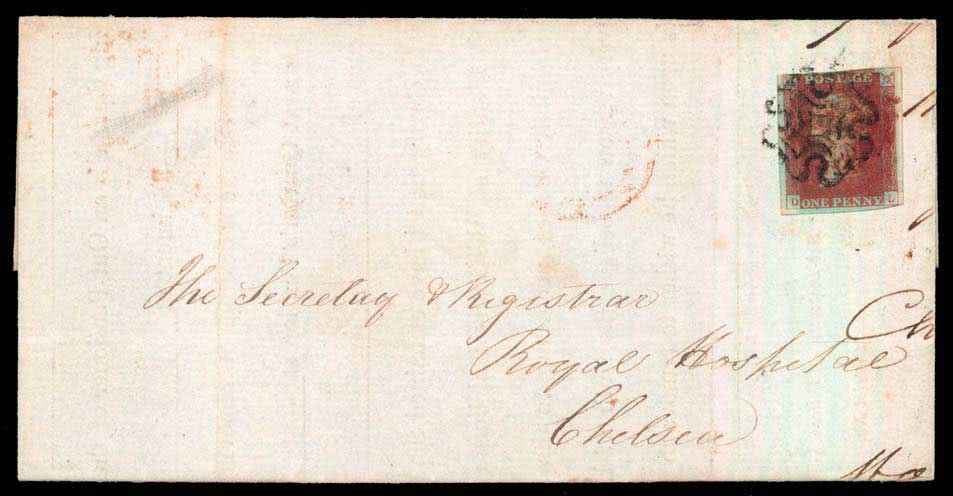 POSTAGE
D ONE PENNY L
The Secretary & Registrar
Royal Hospital
Chelsea